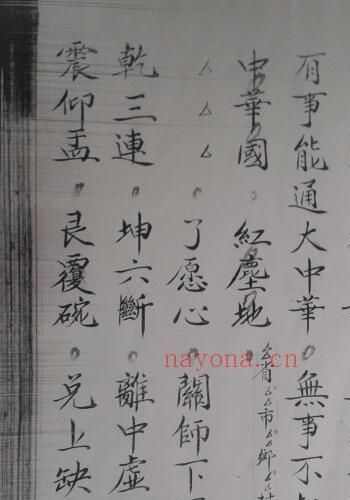 有事能通大中華。無事不
中華國。紅塵地。△省△市△鄉△村
△△△。了愿心。關師下
乾三連。坤六斷。離中虛
震仰盂。艮覆碗。兑上缺
nayona.cn